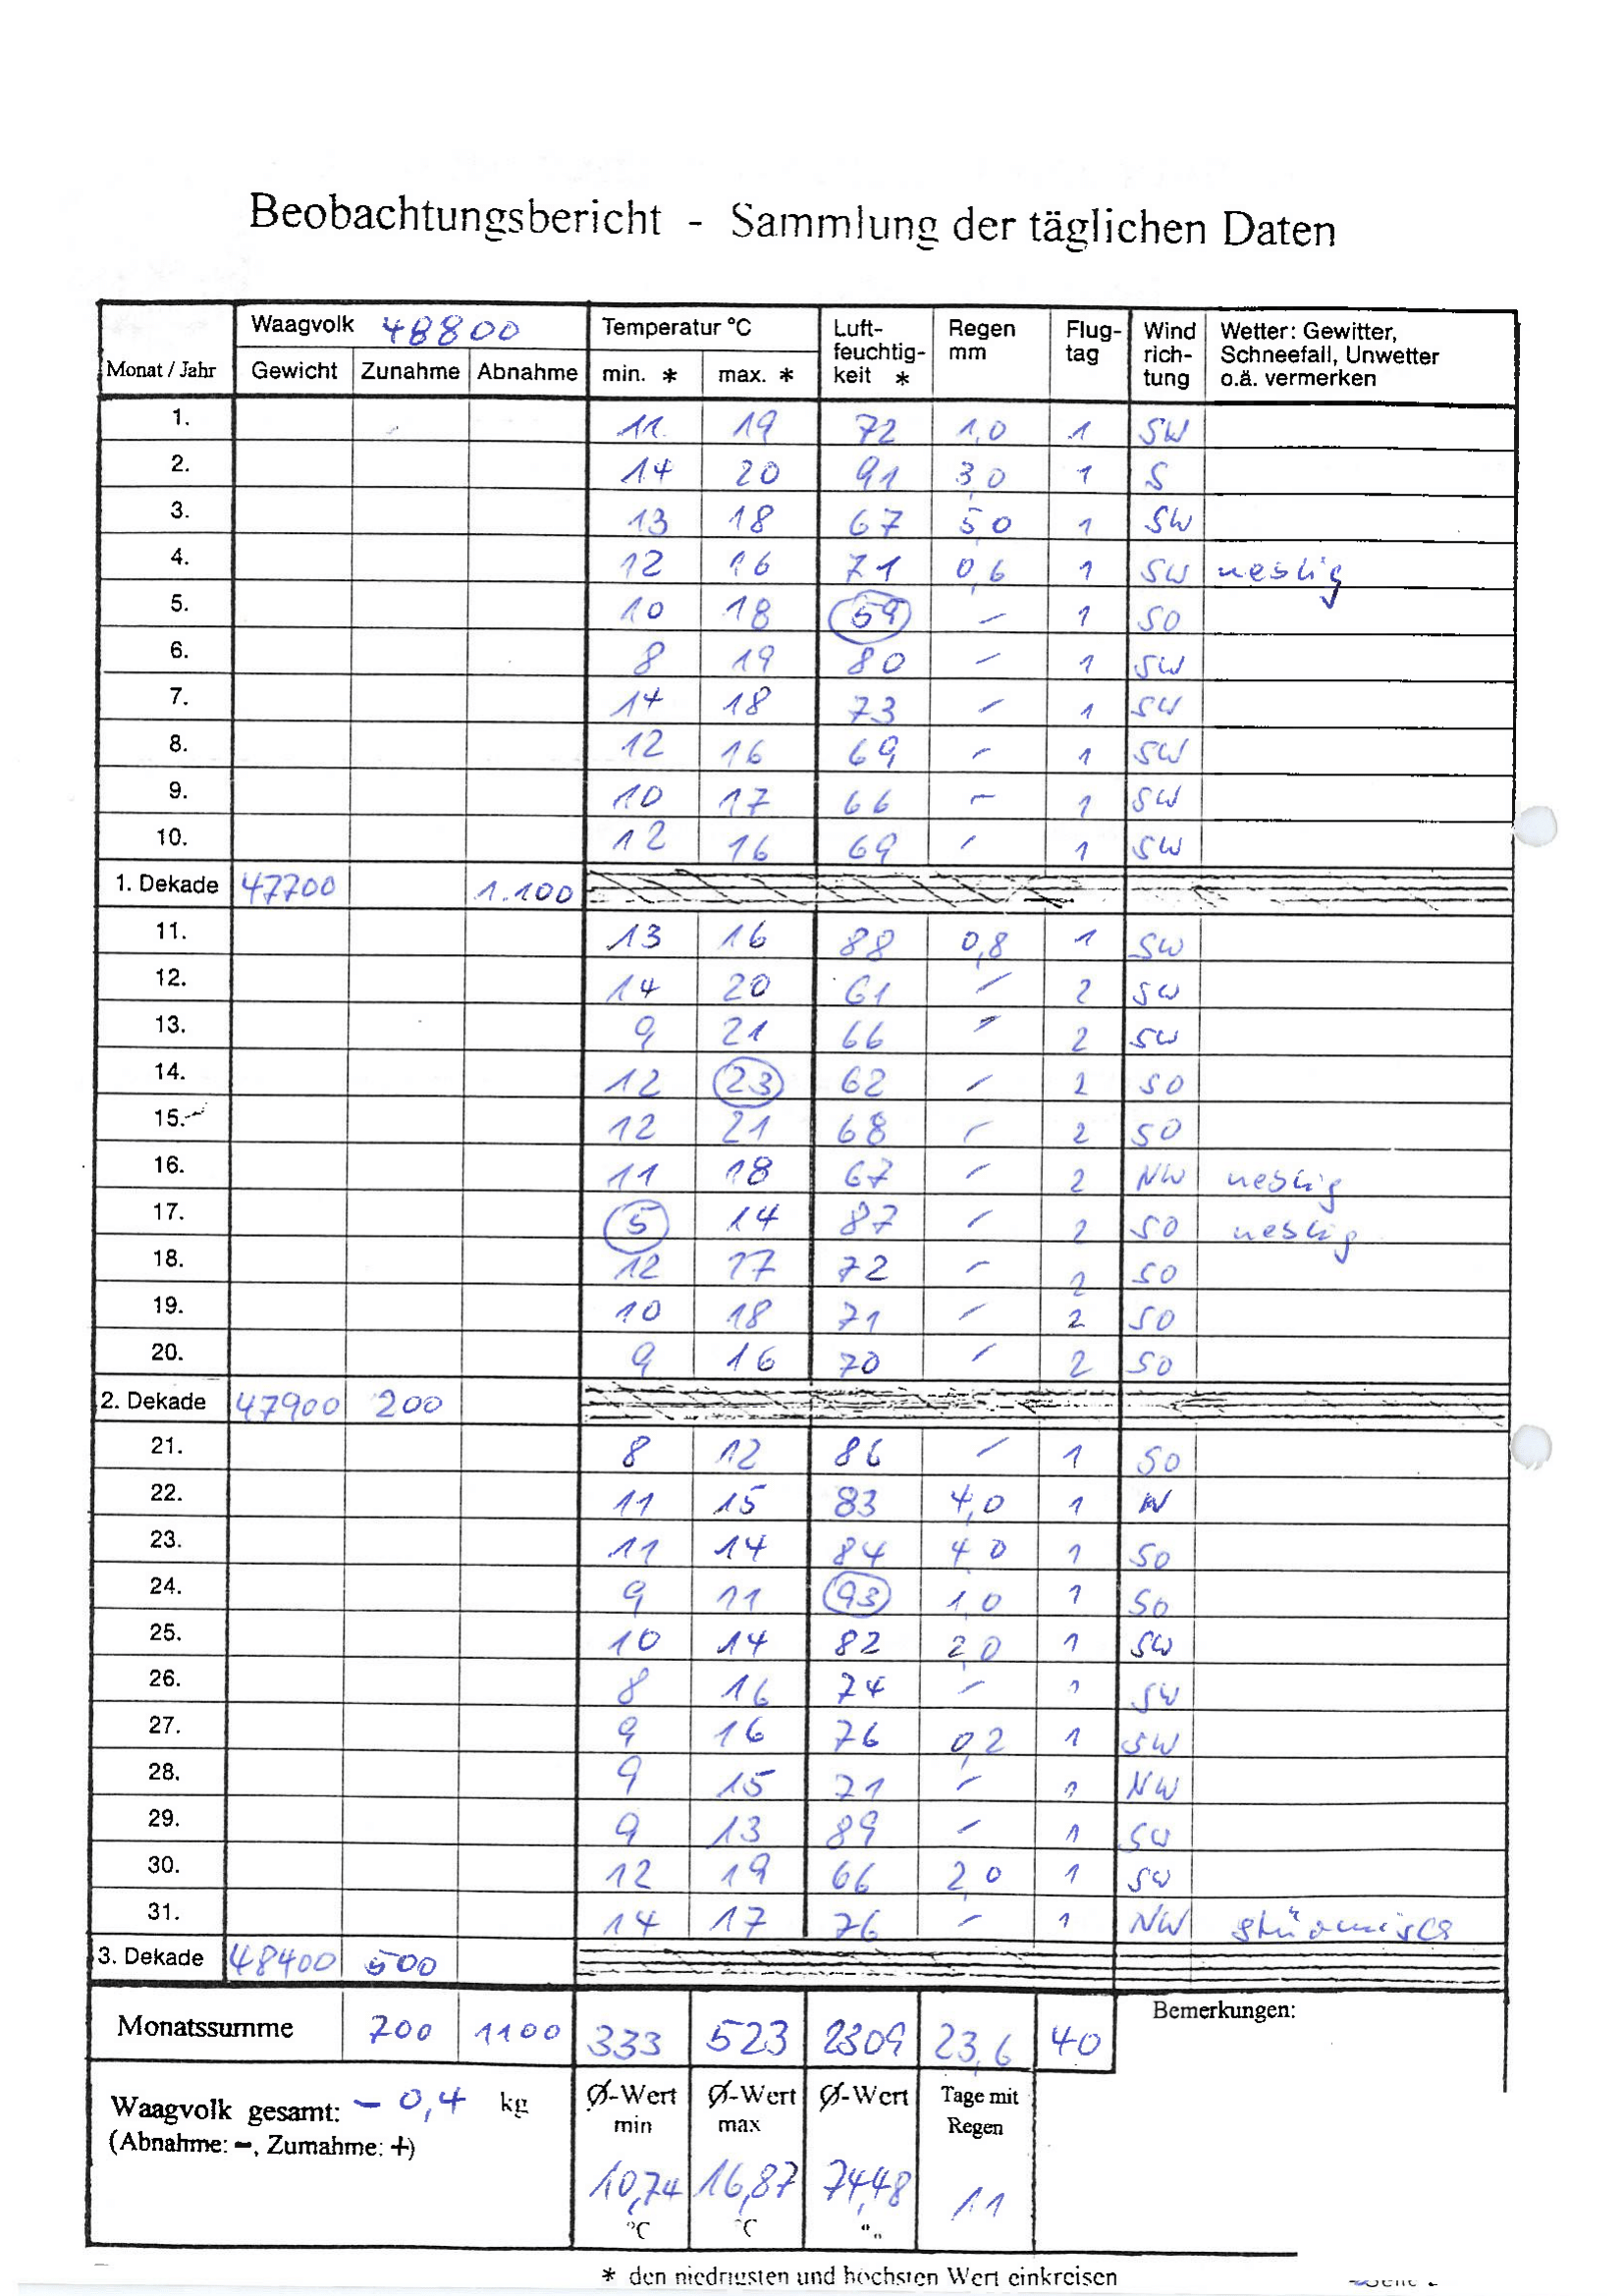 Beobachtungsbericht - Sammlung der täglichen Daten
Monat / Jahr Waagvolk 48800 Temperatur °C Luft-feuchtig-keit * Regen mm Flug-tag Wind rich-tung Wetter: Gewitter, Schneefall, Unwetter o.ä. vermerken
Gewicht Zunahme Abnahme min. * max. *
1. 11 19 72 1,0 1 SW
2. 14 20 91 3,0 1 S
3. 13 18 67 5,0 1 SW
4. 12 16 71 0,6 1 SW neblig
5. 10 18 59 – 1 SO
6. 8 19 80 – 1 SW
7. 14 18 73 – 1 SW
8. 12 16 69 – 1 SW
9. 10 17 66 – 1 SW
10. 12 16 69 – 1 SW
1. Dekade 47700 1.100
11. 13 16 88 0,8 1 SW
12. 14 20 61 – 2 SW
13. 9 21 66 – 2 SW
14. 12 23 62 – 2 SO
15. 12 21 68 – 2 SO
16. 11 18 67 – 2 NW neblig
17. 5 14 87 – 2 SO neblig
18. 12 17 72 – 2 SO
19. 10 18 71 – 2 SO
20. 9 16 70 – 2 SO
2. Dekade 47900 200
21. 8 12 86 – 1 SO
22. 11 15 83 4,0 1 W
23. 11 14 84 4,0 1 SO
24. 9 11 93 1,0 1 SO
25. 10 14 82 2,0 1 SW
26. 8 16 74 – 1 SW
27. 9 16 76 0,2 1 SW
28. 9 15 71 – 1 NW
29. 9 13 89 – 1 SW
30. 12 19 66 2,0 1 SW
31. 14 17 76 – 1 NW stürmisch
3. Dekade 48400 500
Monatssumme 700 1100 333 523 2309 23,6 40 Bemerkungen:
Waagvolk gesamt: – 0,4 kg Ø-Wert min Ø-Wert max Ø-Wert Tage mit Regen
(Abnahme: –, Zumahme: +)
10,74 16,87 74,48 11
°C °C
* den niedrigsten und höchsten Wert einkreisen